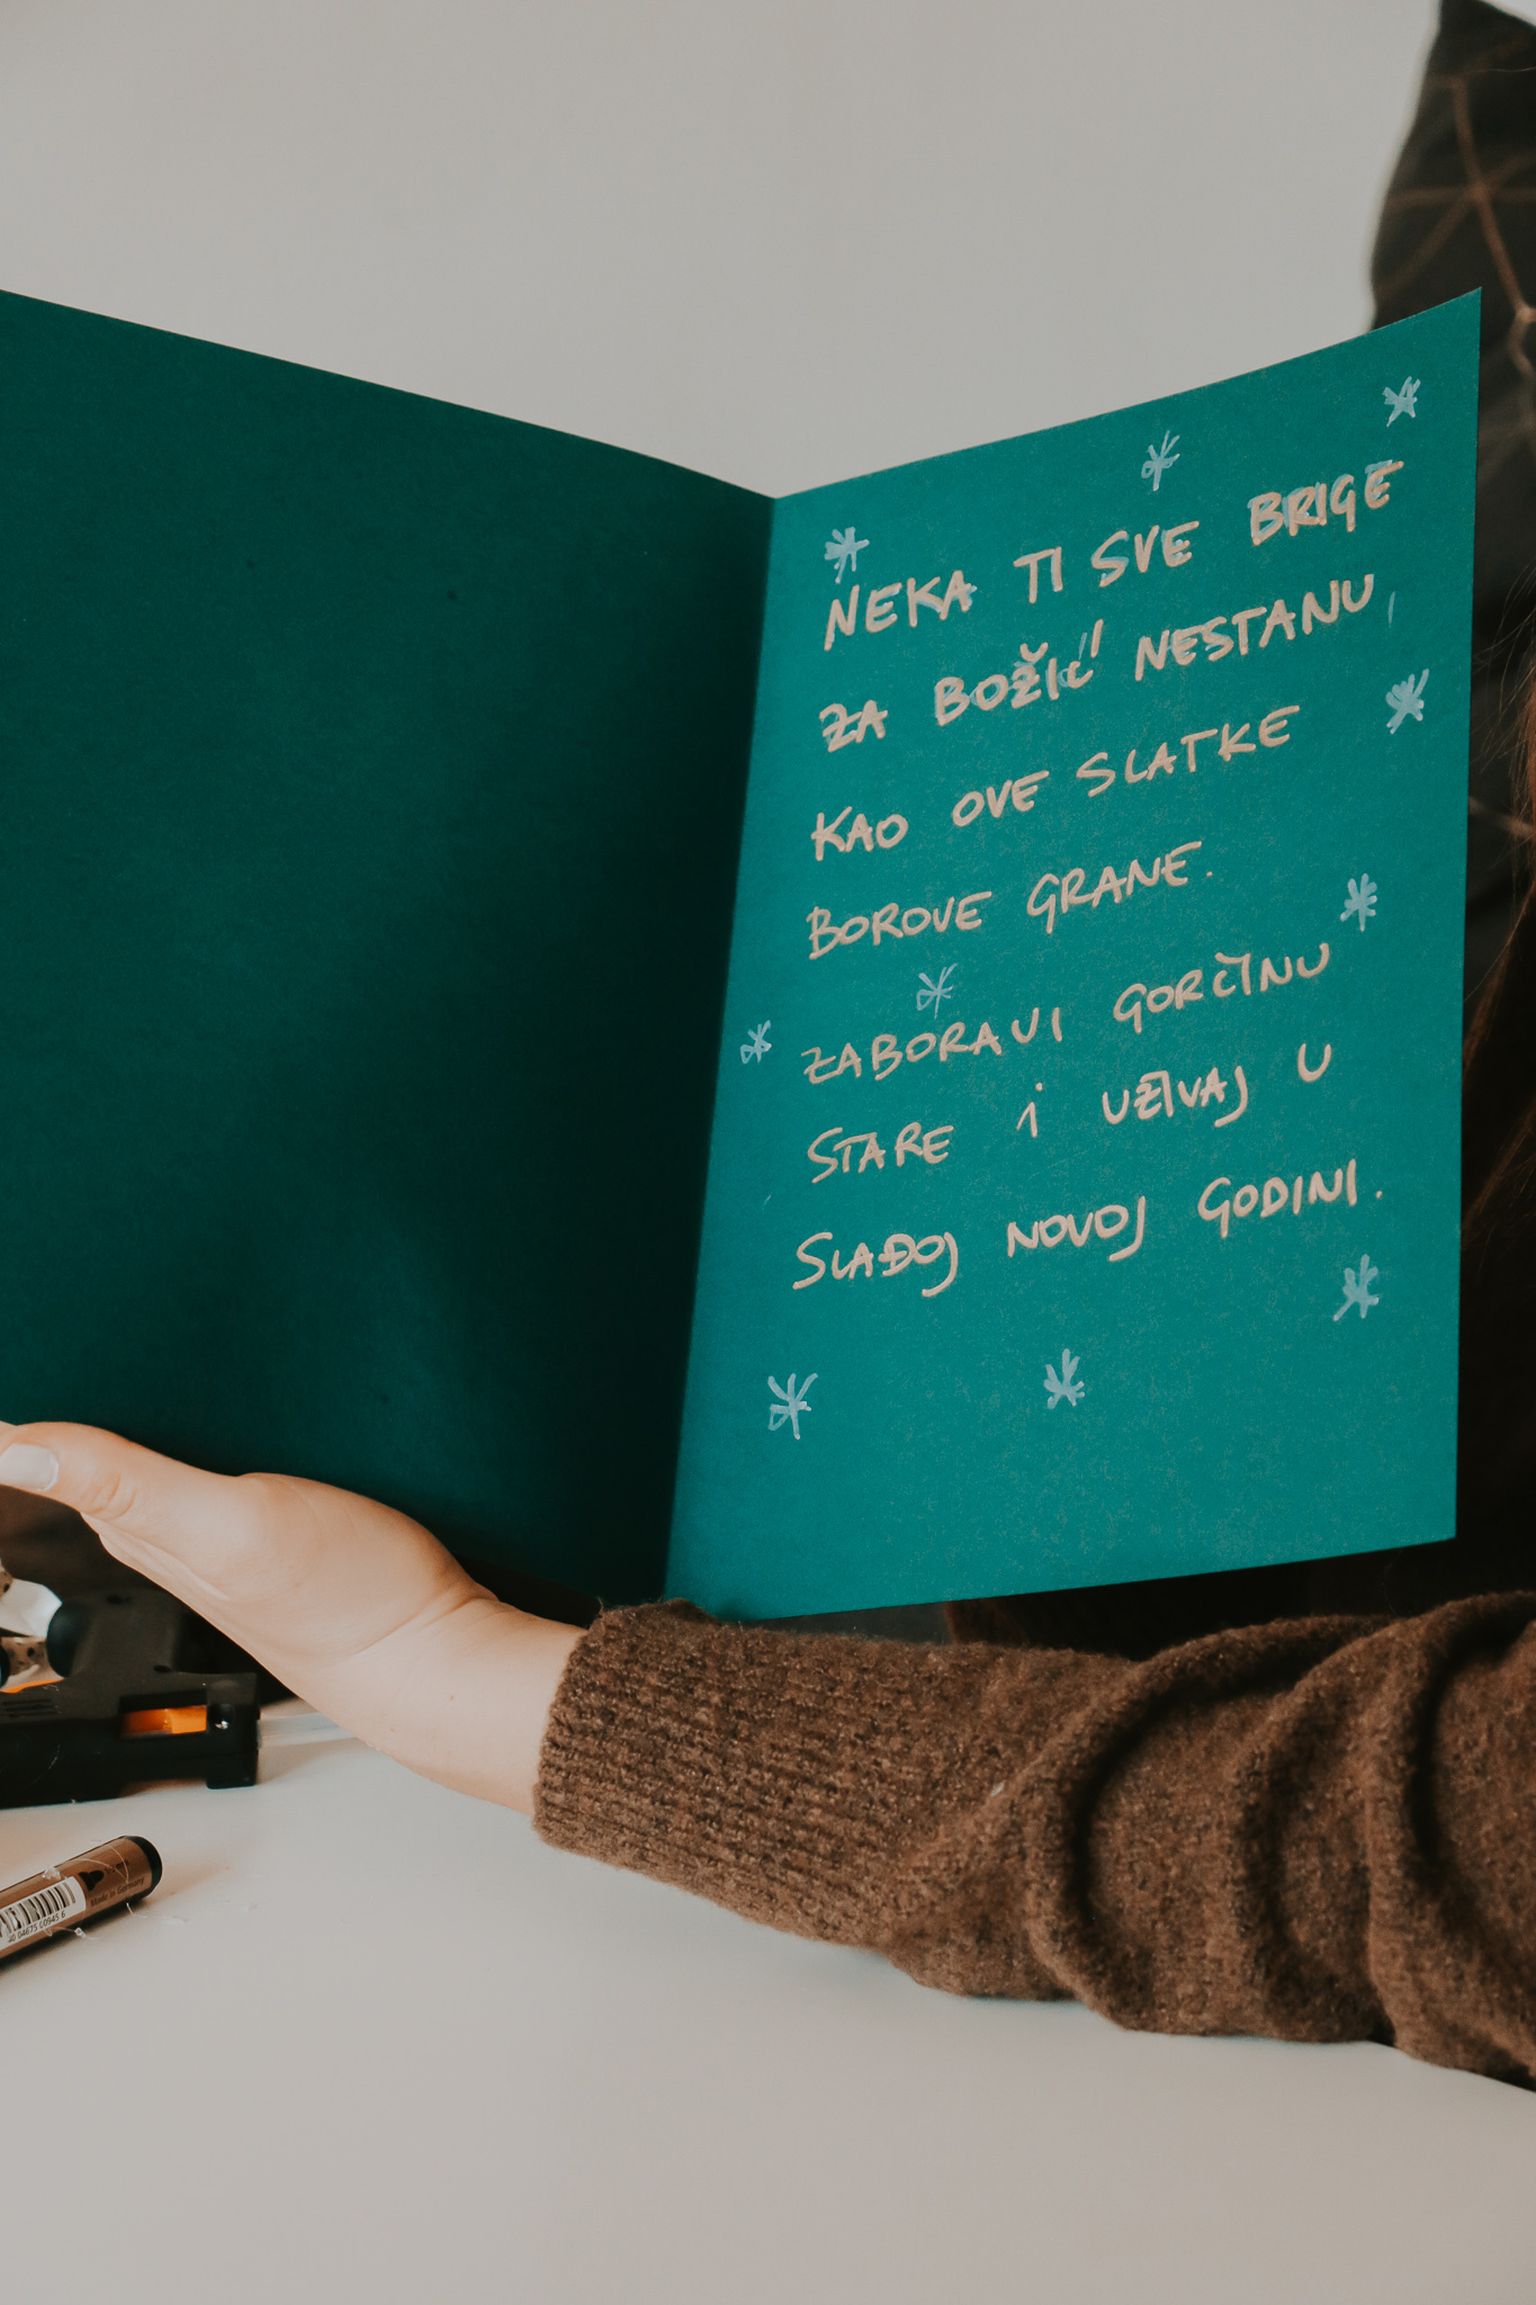 NEKA TI SVE BRIGE
ZA BOŽIĆ NESTANU
KAO OVE SLATKE
BOROVE GRANE.
ZABORAVI GORČINU
STARE i UŽIVAJ U
SLAĐOJ NOVOJ GODINI.
Made in Germany